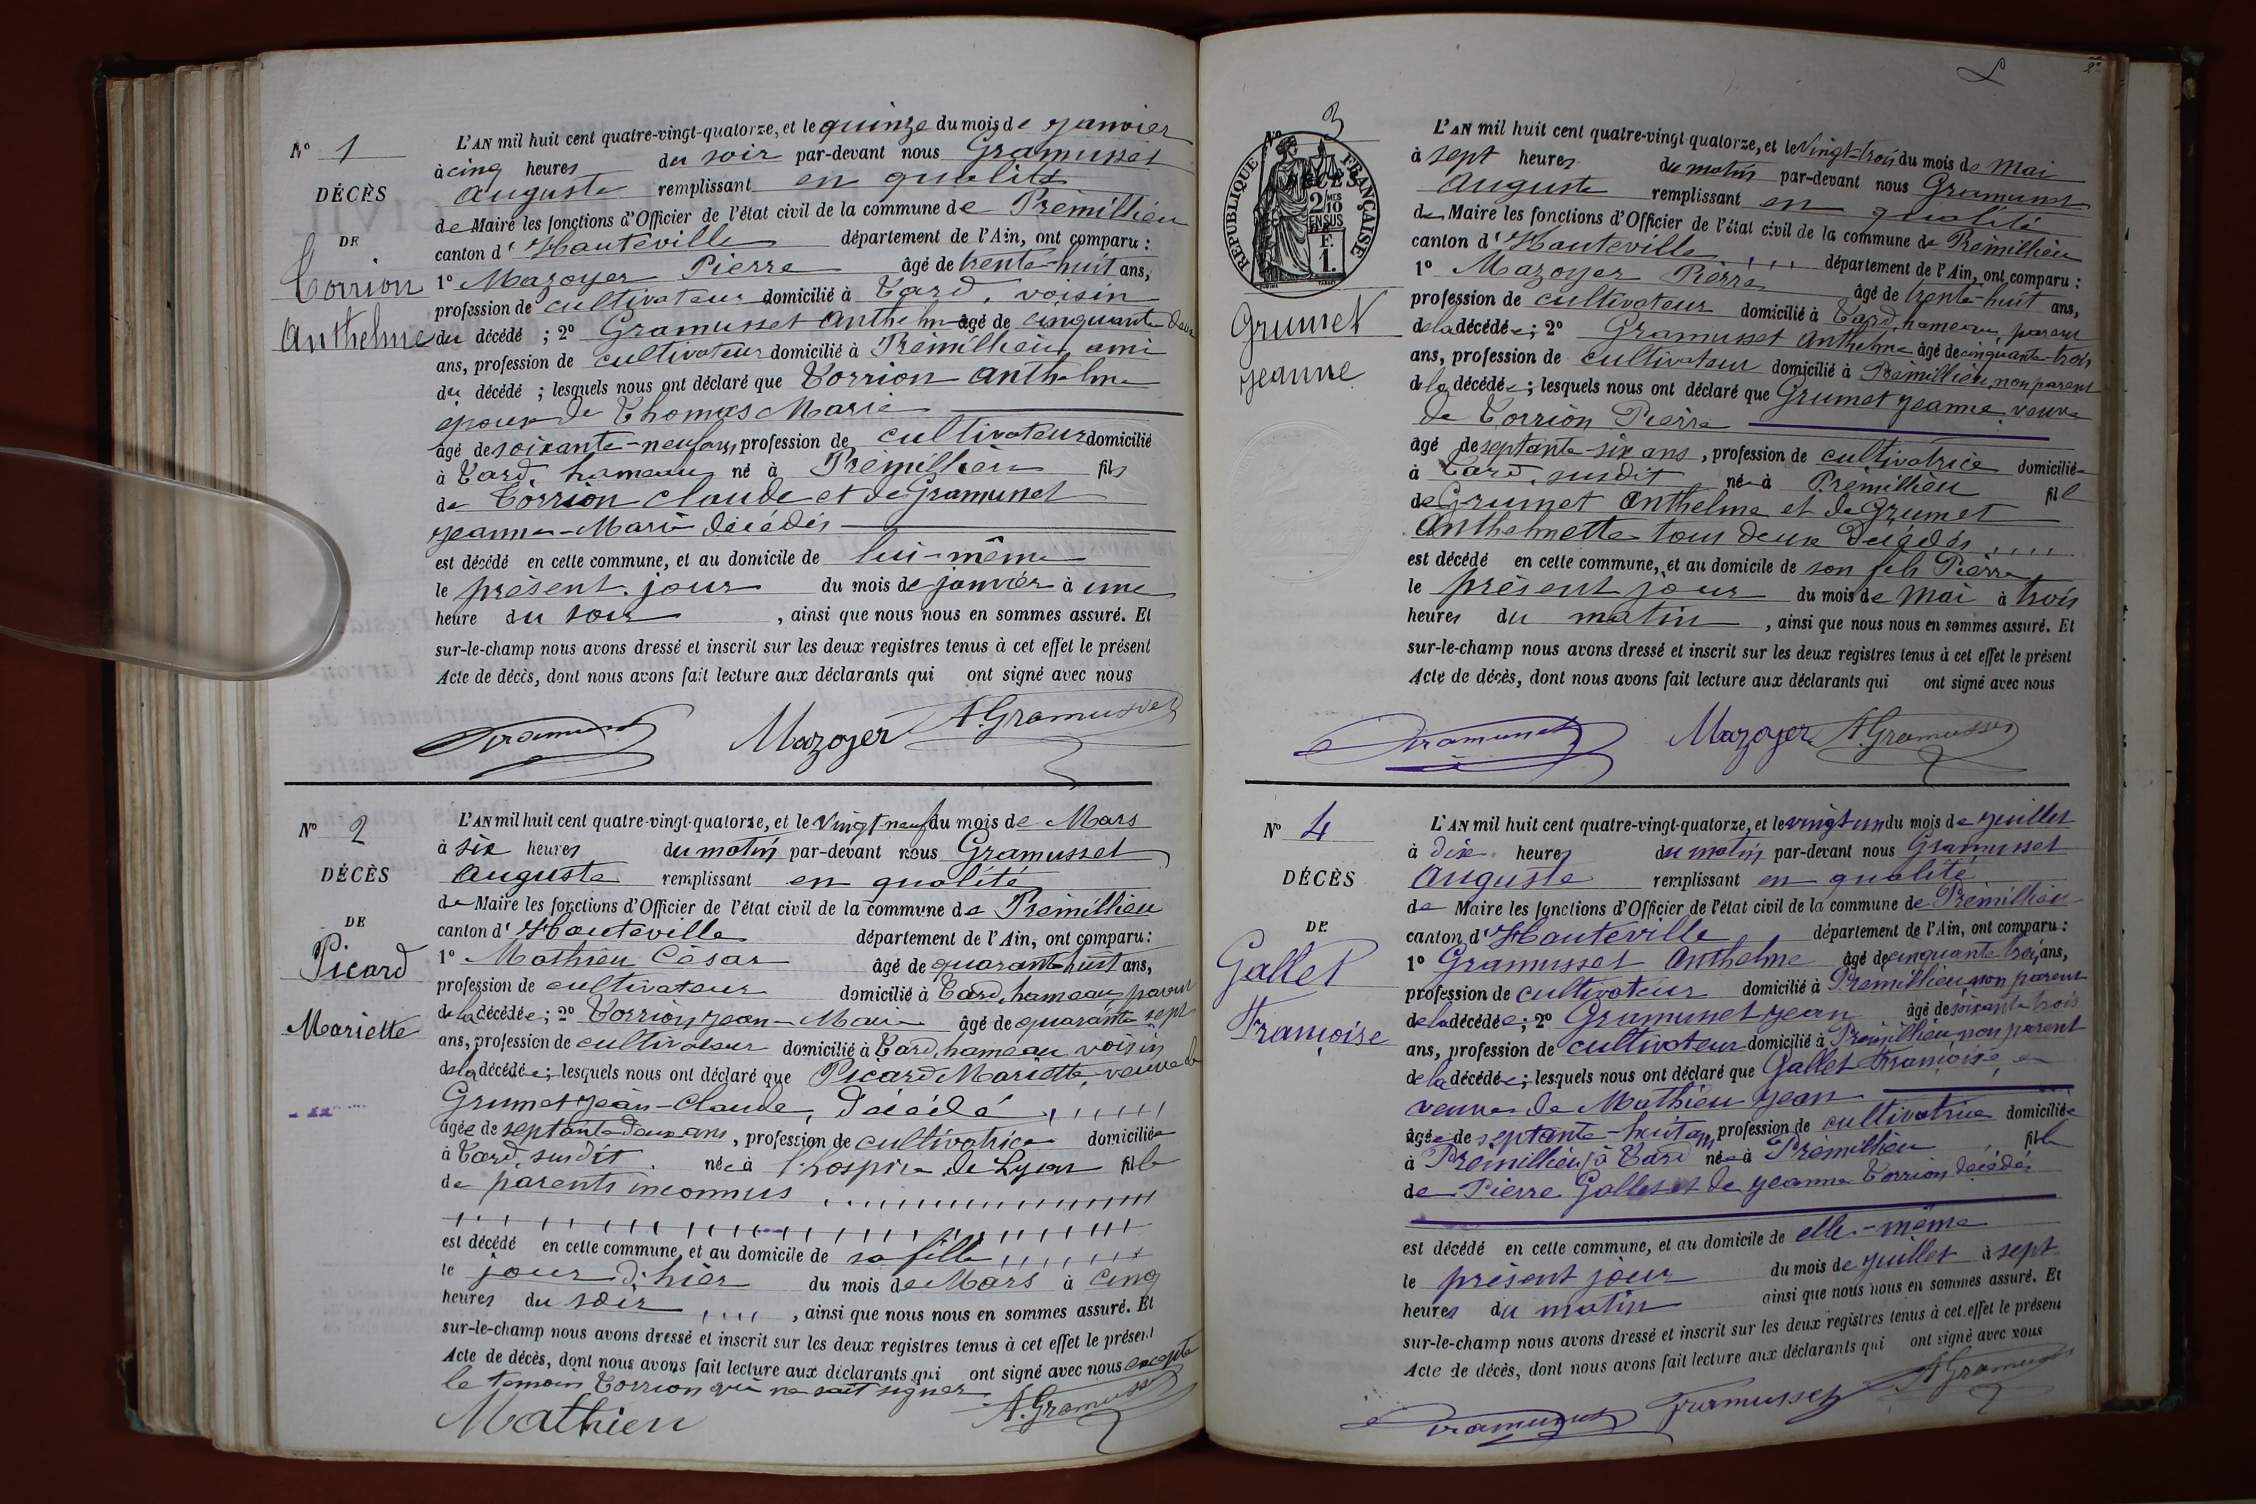 N° 1
DÉCÈS
DE
Torrion
Anthelme
L'AN mil huit cent quatre-vingt-quatorze, et le quinze du mois de Janvier
à cinq heures du soir par-devant nous Gramusset
Auguste remplissant en qualité
de Maire les fonctions d'Officier de l'état civil de la commune de Prémillieu
canton d'Hauteville département de l'Ain, ont comparu :
1° Mazoyer Pierre âgé de trente-huit ans,
profession de cultivateur domicilié à Tard, voisin
du décédé ; 2° Gramusset Anthelme âgé de cinquante deux
ans, profession de cultivateur domicilié à Prémillieu, ami
du décédé ; lesquels nous ont déclaré que Torrion Anthelme
époux de Thomas Marie
âgé de soixante-neuf ans, profession de cultivateur domicilié
à Tard, hameau né à Prémillieu fils
de Torrion Claude et de Gramusset
Jeanne-Marie décédés
est décédé en cette commune, et au domicile de lui-même
le présent jour du mois de janvier à une
heure du soir , ainsi que nous nous en sommes assuré. Et
sur-le-champ nous avons dressé et inscrit sur les deux registres tenus à cet effet le présent
Acte de décès, dont nous avons fait lecture aux déclarants qui ont signé avec nous
Gramusset Mazoyer A. Gramusset
N° 2
DÉCÈS
DE
Picard
Mariette
L'AN mil huit cent quatre-vingt-quatorze, et le vingt neuf du mois de Mars
à six heures du matin par-devant nous Gramusset
Auguste remplissant en qualité
de Maire les fonctions d'Officier de l'état civil de la commune de Prémillieu
canton d'Hauteville département de l'Ain, ont comparu :
1° Mathieu César âgé de quarante huit ans,
profession de cultivateur domicilié à Tard, hameau, parent
de la décédée ; 2° Torrion Jean-Marie âgé de quarante sept
ans, profession de cultivateur domicilié à Tard, hameau voisin
de la décédée ; lesquels nous ont déclaré que Picard Mariette, veuve de
Grumet Jean-Claude, décédé
âgée de septante deux ans, profession de cultivatrice domiciliée
à Tard, susdit née à l'hospice de Lyon fille
de parents inconnus
est décédé en cette commune, et au domicile de sa fille
le jour d'hier du mois de Mars à cinq
heures du soir , ainsi que nous nous en sommes assuré. Et
sur-le-champ nous avons dressé et inscrit sur les deux registres tenus à cet effet le présent
Acte de décès, dont nous avons fait lecture aux déclarants qui ont signé avec nous excepté
le témoin Torrion qui ne sait signer
Mathieu A. Gramusset
2
N° 3
RÉPUBLIQUE FRANÇAISE
2/10
EN SUS
F.
1.
Grumet
Jeanne
L'AN mil huit cent quatre-vingt-quatorze, et le vingt-trois du mois de Mai
à sept heures du matin par-devant nous Gramusset
Auguste remplissant en qualité
de Maire les fonctions d'Officier de l'état civil de la commune de Prémillieu
canton d'Hauteville département de l'Ain, ont comparu :
1° Mazoyer Pierre âgé de trente-huit ans,
profession de cultivateur domicilié à Tard, hameau, parent
de la décédée ; 2° Gramusset Anthelme âgé de cinquante-trois
ans, profession de cultivateur domicilié à Prémillieu, non parent
de la décédée ; lesquels nous ont déclaré que Grumet Jeanne veuve
de Torrion Pierre
âgé de septante-six ans, profession de cultivatrice domiciliée
à Tard, susdit née à Prémillieu fille
de Grumet Anthelme et de Grumet
Anthelmette tous deux décédés
est décédé en cette commune, et au domicile de son fils Pierre
le présent jour du mois de Mai à trois
heures du matin , ainsi que nous nous en sommes assuré. Et
sur-le-champ nous avons dressé et inscrit sur les deux registres tenus à cet effet le présent
Acte de décès, dont nous avons fait lecture aux déclarants qui ont signé avec nous
Gramusset Mazoyer A. Gramusset
N° 4
DÉCÈS
DE
Gallet
Françoise
L'AN mil huit cent quatre-vingt-quatorze, et le vingt-un du mois de Juillet
à dix heures du matin par-devant nous Gramusset
Auguste remplissant en qualité
de Maire les fonctions d'Officier de l'état civil de la commune de Prémillieu
canton d'Hauteville département de l'Ain, ont comparu :
1° Gramusset Anthelme âgé de cinquante trois ans,
profession de cultivateur domicilié à Prémillieu, non parent
de la décédée ; 2° Gramusset Jean âgé de soixante trois
ans, profession de cultivateur domicilié à Prémillieu non parent
de la décédée ; lesquels nous ont déclaré que Gallet Françoise
veuve de Mathieu Jean
âgée de septante-huit ans, profession de cultivatrice domiciliée
à Prémillieu, à Tard née à Prémillieu fille
de Pierre Gallet et de Jeanne Torrion décédés
est décédé en cette commune, et au domicile de elle-même
le présent jour du mois de Juillet à sept
heures du matin ainsi que nous nous en sommes assuré. Et
sur-le-champ nous avons dressé et inscrit sur les deux registres tenus à cet effet le présent
Acte de décès, dont nous avons fait lecture aux déclarants qui ont signé avec nous
Gramusset Gramusset A. Gramusset